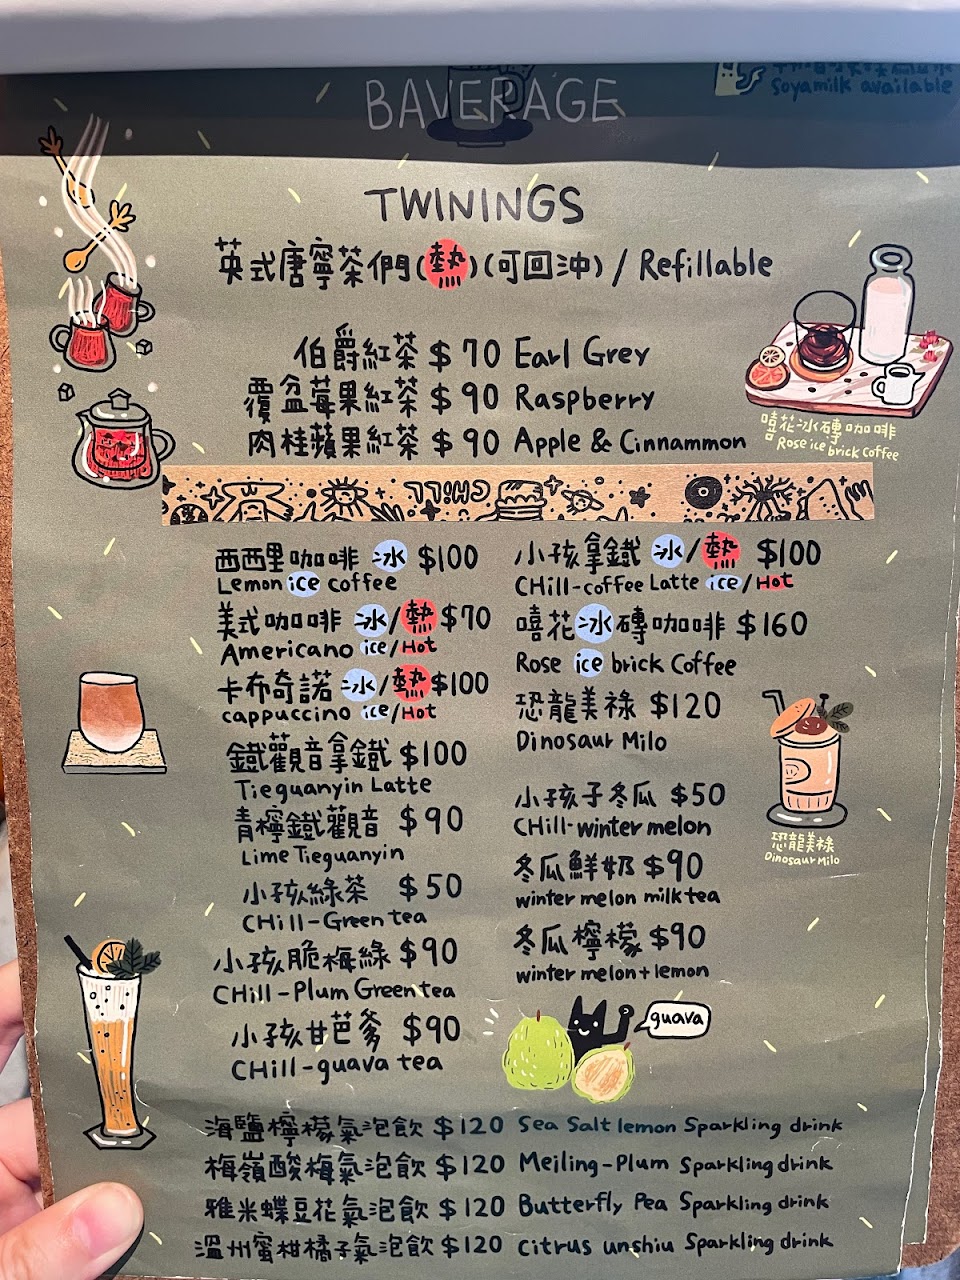 Soyamilk available
BAVERAGE
TWININGS
英式唐寧茶們(熱)(可回沖) / Refillable
伯爵紅茶 $70 Earl Grey
覆盆莓果紅茶 $90 Raspberry
肉桂蘋果紅茶 $90 Apple & Cinnammon
嘻花冰磚咖啡
Rose ice brick Coffee
CHILL
西西里咖啡 冰 $100
Lemon ice coffee
美式咖啡 冰/熱 $70
Americano ice/Hot
卡布奇諾 冰/熱 $100
cappuccino ice/Hot
鐵觀音拿鐵 $100
Tieguanyin Latte
青檸鐵觀音 $90
Lime Tieguanyin
小孩綠茶 $50
CHill-Green tea
小孩脆梅綠 $90
CHill-Plum Green tea
小孩甘芭爹 $90
CHill-guava tea
小孩拿鐵 冰/熱 $100
CHill-coffee Latte ice/Hot
嘻花冰磚咖啡 $160
Rose ice brick Coffee
恐龍美祿 $120
Dinosaur Milo
小孩子冬瓜 $50
CHill-winter melon
冬瓜鮮奶 $90
winter melon milk tea
冬瓜檸檬 $90
winter melon+lemon
恐龍美祿
Dinosaur Milo
guava
海鹽檸檬氣泡飲 $120 Sea Salt lemon Sparkling drink
梅嶺酸梅氣泡飲 $120 Meiling-Plum Sparkling drink
雅米蝶豆花氣泡飲 $120 Butterfly Pea Sparkling drink
溫州蜜柑橘子氣泡飲 $120 Citrus unshiu Sparkling drink